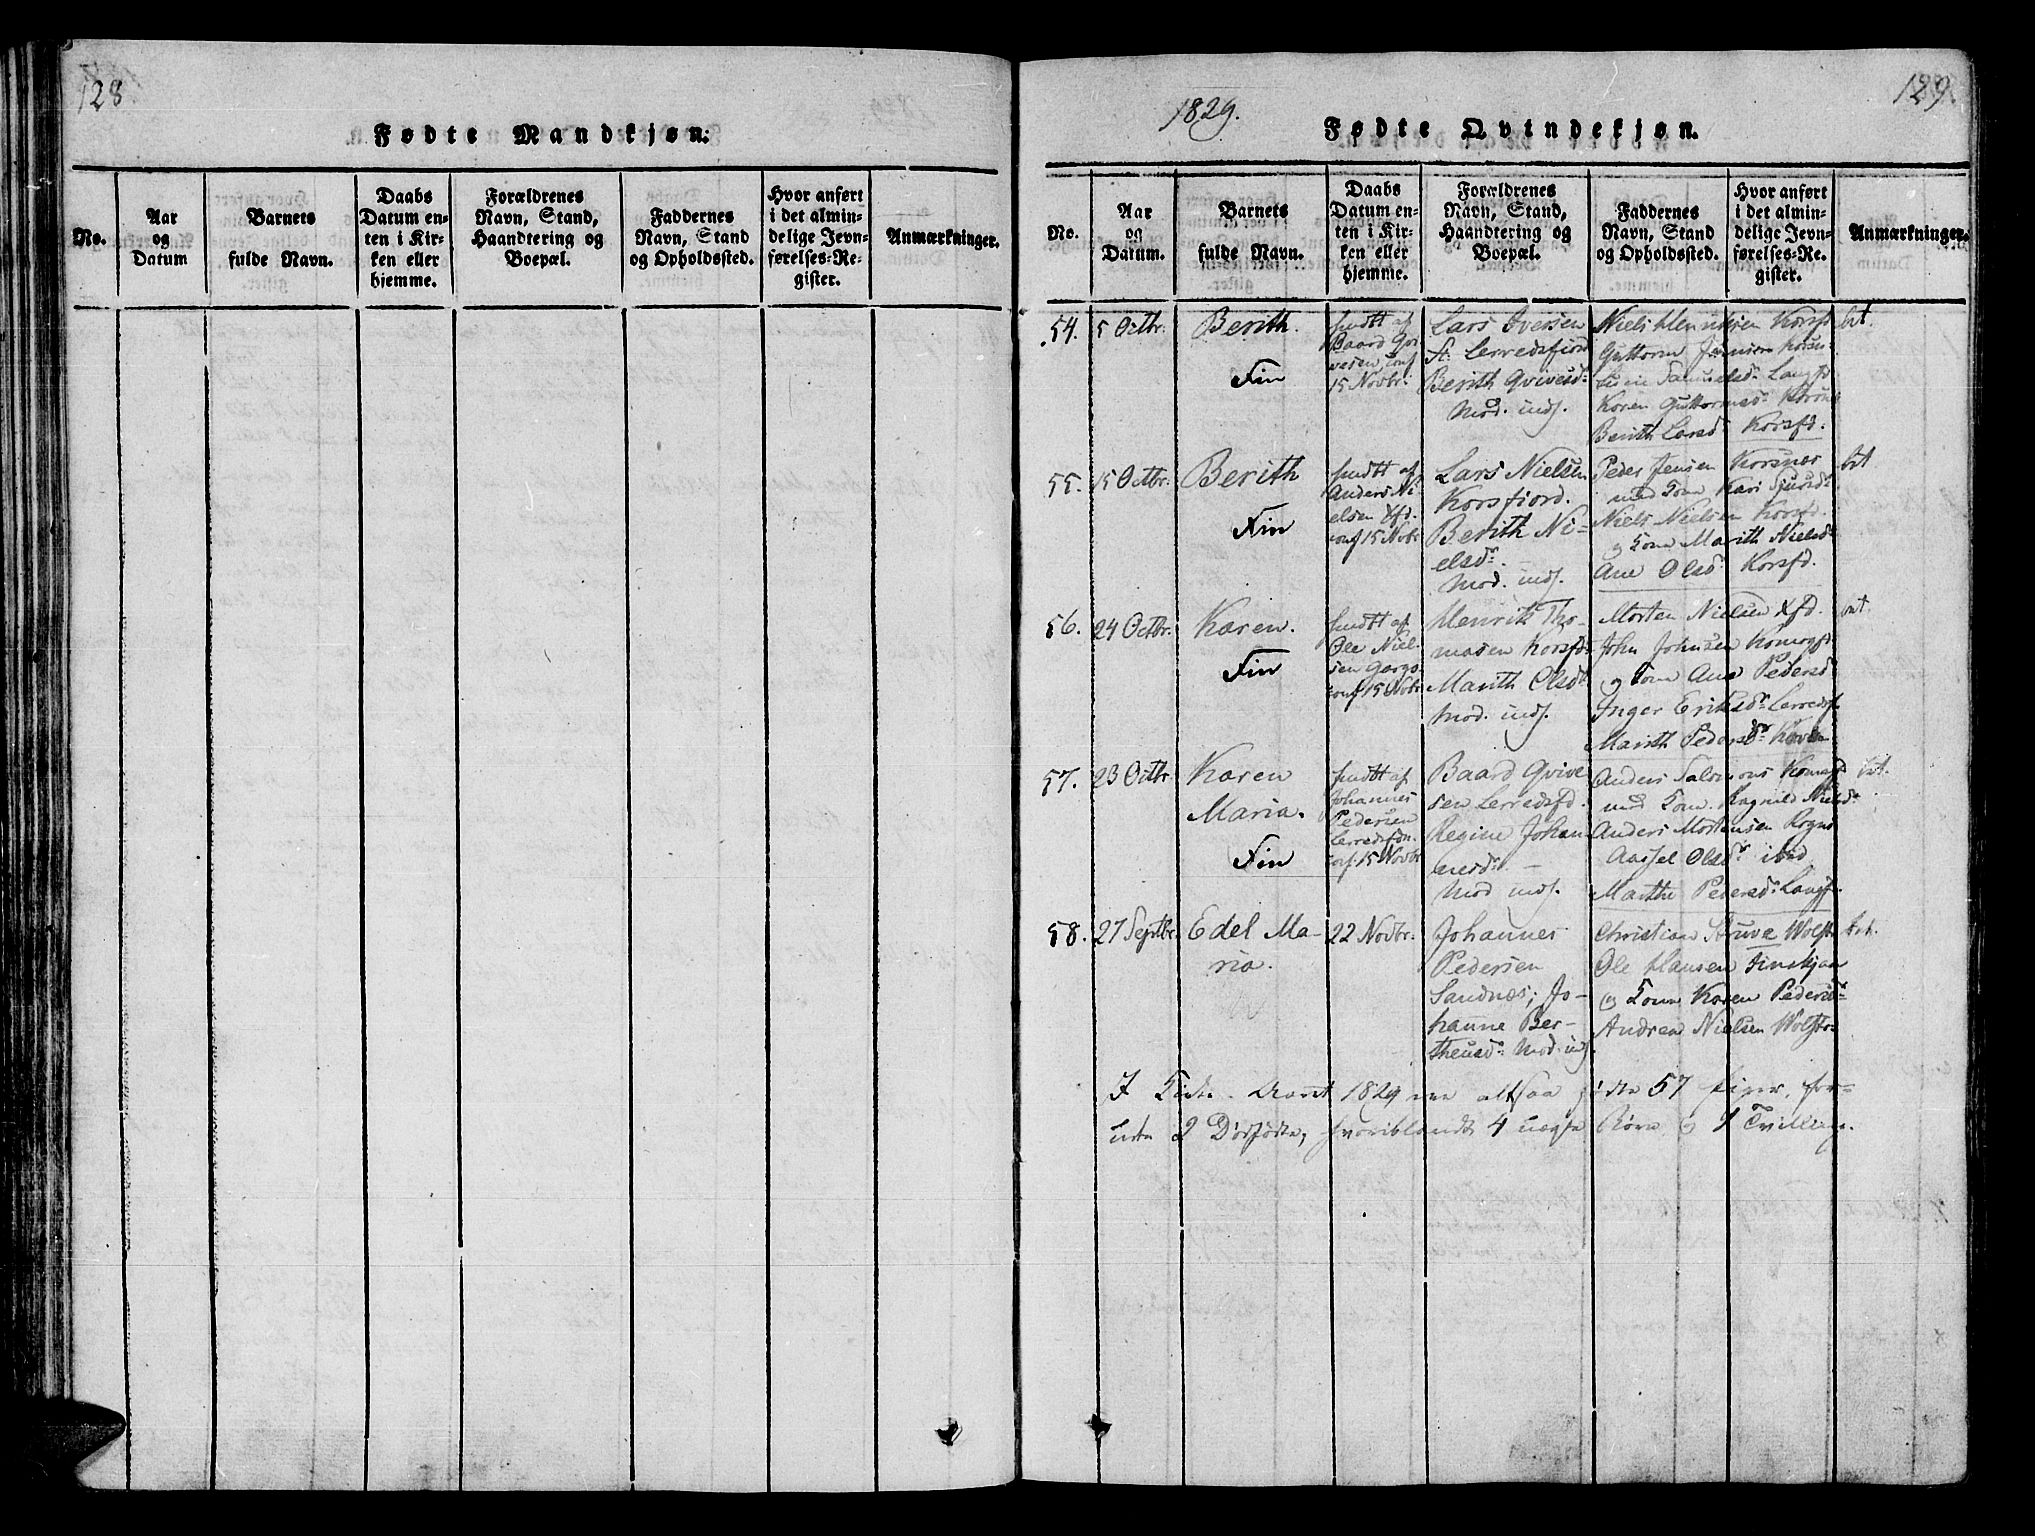 128
Fødte Mandkjøn.
No.
Aar
og
Datum
Barnets
fulde Navn.
Daabs
Datum en-
ten i Kir-
ken eller
hjemme.
Forældrenes
Navn, Stand,
Haandtering og
Boepæl.
Faddernes
Navn, Stand
og Opholdssted.
Hvor anført
i det almin-
delige Jevn-
førelses-Re-
gister.
Anmærkninger.
129.
1829.
Fødte Qvindekjøn.
No.
Aar
og
Datum.
Barnets
fulde Navn.
Daabs
Datum en-
ten i Kir-
ken eller
hjemme.
Forældrenes
Navn, Stand,
Haandtering og
Boepæl.
Faddernes
Navn, Stand
og Opholdssted.
Hvor anført
i det almin-
delige Jevn-
førelses-Re-
gister.
Anmærkninger.
54.
5 Octbr.
Berith.
Fin
hmdbt af
Baard Gvi-
vesen, conf
15 Novbr.
Lars Iversen
Lerredsfiord
Berith Gvivesd.
Mod. inds.
Niels Henriksen Korsfd
Guttorm Jensen
Samuelsd. Langf
Karen Guttormsd.
Berith Larsd. Korsfd.
55.
15 Octbr.
Berith
Fin
hmdbt af
Anders Ni-
elsen Kfd.
conf 15 Novbr
Lars Nielsen
Korsfiord.
Berith Ni-
elsd.
Mod. inds.
Peder Jensen Korsnæs
med Kone Kari Sjursd.
Niels Nielsen Korsfd.
og Kone Marith Nielsd.
Ane Olsd. Korsfd.
56.
24 Octbr.
Karen.
Fin
hmdbt af
Ole Niel-
sen Gargo
conf 15 Novbr
Henrik Tho-
masen Korsfd.
Marith Olsd.
Mod. inds.
Morten Nielsen Kfd.
John Johnsen Komagf.
og Kone Ane Pedersd.
Inger Eriksd. Lerredsf.
Marith Pedersd.
57.
23 Octbr.
Karen
Maria.
Fin
hmdbt af
Johannes
Pedersen
Lerredsfd.
conf. 15 Novbr
Baard Gvive-
sen Lerredsfd.
Regine Johan-
nesd.
Mod inds.
Anders Salomons Komagfd
med Kone. Ragnild Nielsd.
Anders Mortensen
Aassel Olsd. ibid
Marthe Pedersd. Langf.
58.
27 Septbr.
Edel Ma-
ria.
22 Novbr.
Johannes
Pedersen
Sandnæs; Jo-
hanne Ber-
theusd. Mod. inds.
Christian Struve
Ole Hansen
og Kone Karen Pedersd.
Andreas Nielsen
I Aaret 1829 ere altsaa fødte 57 Piger, for-
uden 2 Dødfødte, hvoriblandt 4 uægte Børn og 1 Tvilling.